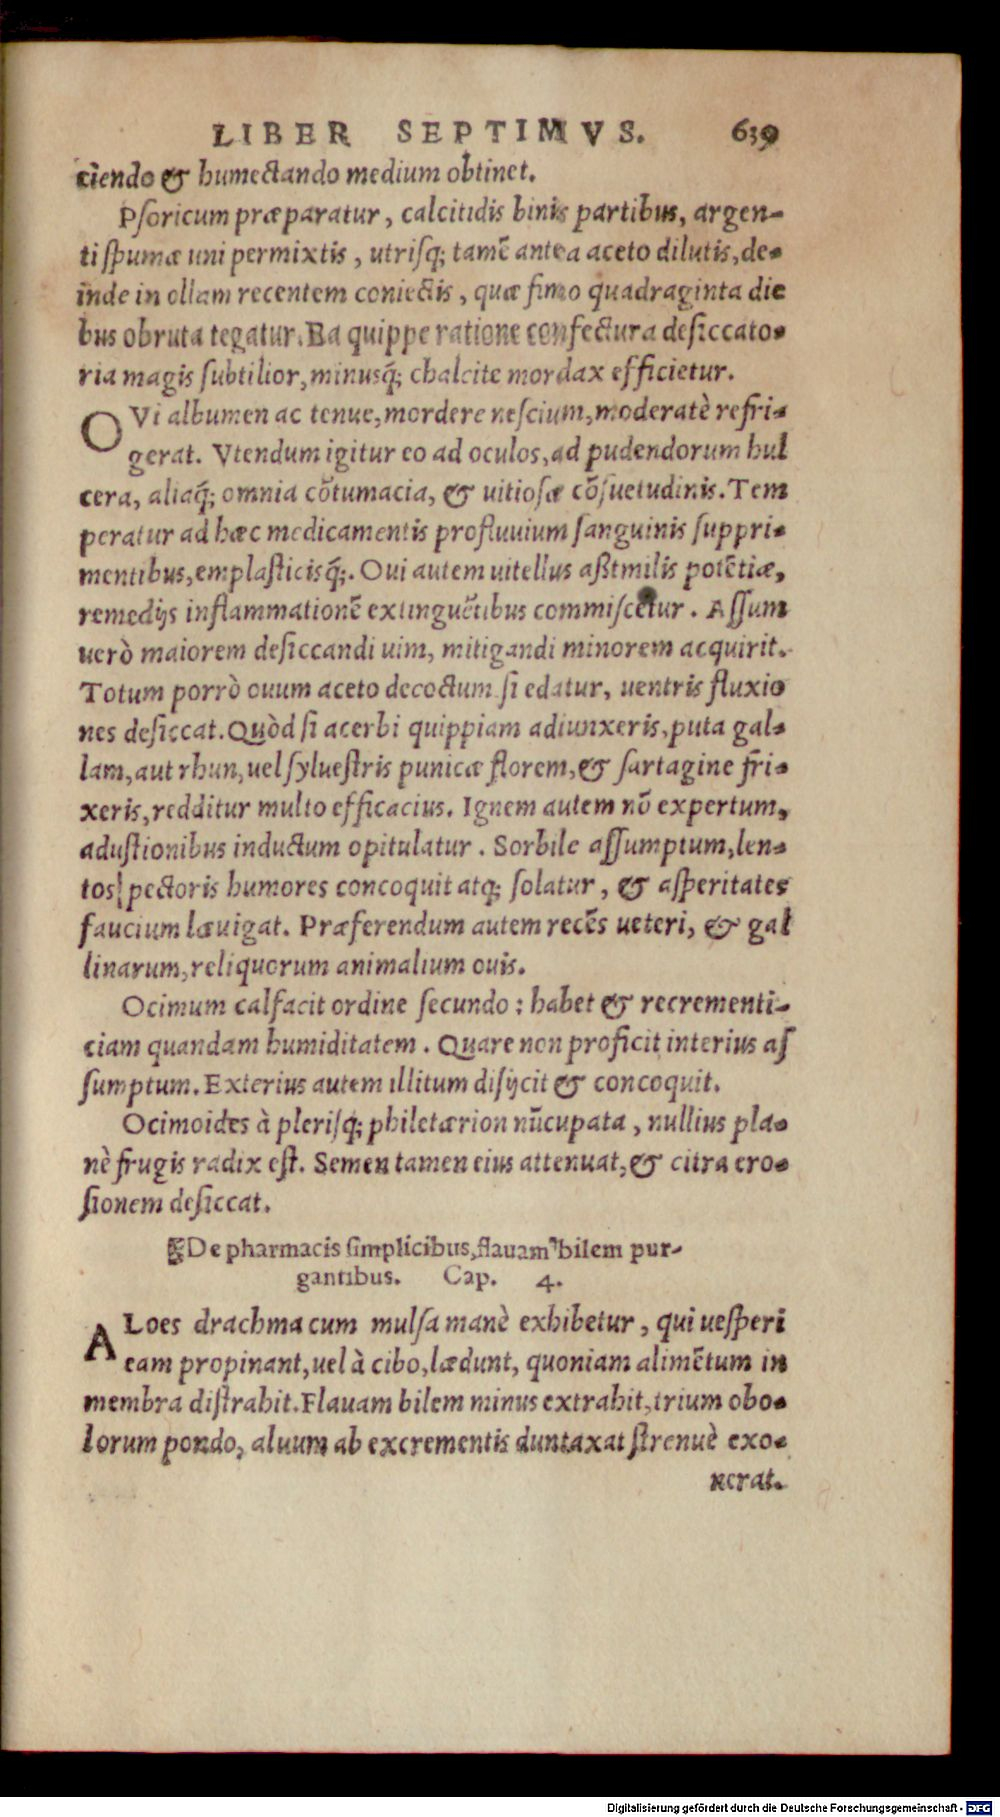 LIBER SEPTIMVS. 639
ciendo & humectando medium obtinet.
Psoricum præparatur, calcitidis binis partibus, argen-
ti spumæ uni permixtis, utrisq; tamẽ antea aceto dilutis, de-
inde in ollam recentem coniectis, quæ fimo quadraginta die
bus obruta tegatur. Ea quippe ratione confectura desiccato-
ria magis subtilior, minusq́; chalcite mordax efficietur.
OVi albumen ac tenue, mordere nescium, moderatè refri-
gerat. Vtendum igitur eo ad oculos, ad pudendorum hul
cera, aliaq́; omnia cõtumacia, & uitiosæ cõsuetudinis. Tem
peratur ad hæc medicamentis profluuium sanguinis suppri-
mentibus, emplasticisq́;. Oui autem uitellus assimilis potẽtiæ,
remedijs inflammationẽ extinguẽtibus commiscetur. Assum
uerò maiorem desiccandi uim, mitigandi minorem acquirit.
Totum porrò ouum aceto decoctum si edatur, uentris fluxio
nes desiccat. Quòd si acerbi quippiam adiunxeris, puta gal-
lam, aut rhun, uel syluestris punicæ florem, & sartagine fri-
xeris, redditur multo efficacius. Ignem autem nõ expertum,
adustionibus inductum opitulatur. Sorbile assumptum, len-
tos pectoris humores concoquit atq; solatur, & asperitates
faucium læuigat. Præferendum autem recẽs ueteri, & gal
linarum, reliquorum animalium ouis.
Ocimum calfacit ordine secundo: habet & recrementi-
ciam quandam humiditatem. Quare non proficit interius as
sumptum. Exterius autem illitum disijcit & concoquit.
Ocimoides à plerisq; philetærion nũcupata, nullius pla-
nè frugis radix est. Semen tamen eius attenuat, & citra ero-
sionem desiccat.
De pharmacis simplicibus, flauam bilem pur-
gantibus. Cap. 4.
ALoes drachma cum mulsa manè exhibetur, qui uesperi
eam propinant, uel à cibo, lædunt, quoniam alimẽtum in
membra distrahit. Flauam bilem minus extrahit, trium obo-
lorum pondo, aluum ab excrementis duntaxat strenuè exo-
nerat.
Digitalisierung gefördert durch die Deutsche Forschungsgemeinschaft - DFG